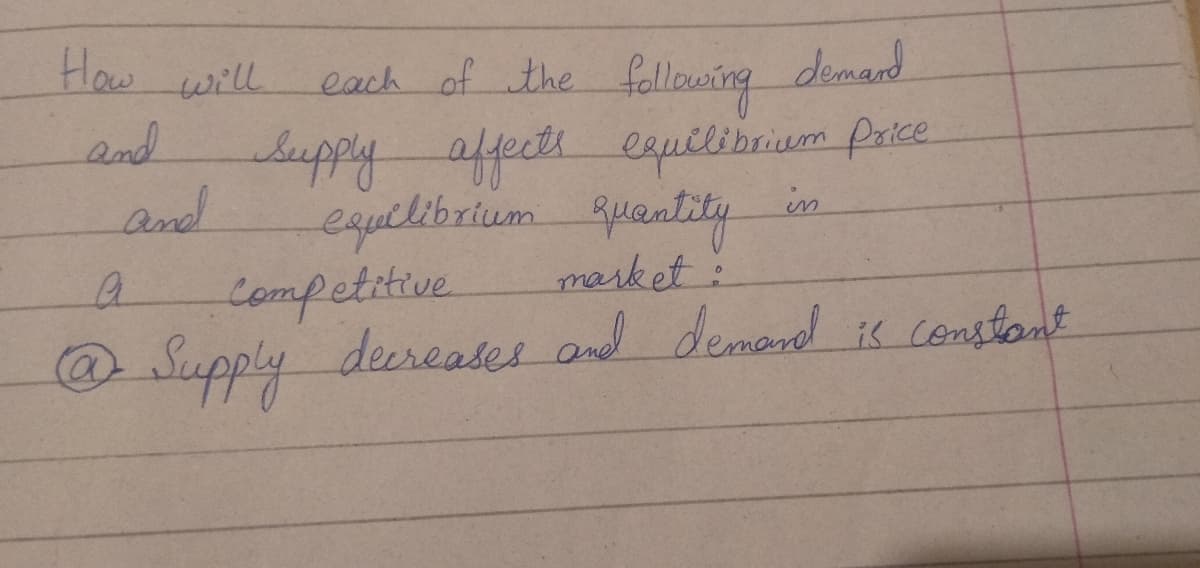 How will each of the following demand
and Supply affects equilibrium Price
and equilibrium quantity in
a Competitive market :
(a) Supply decreases and demand is constant